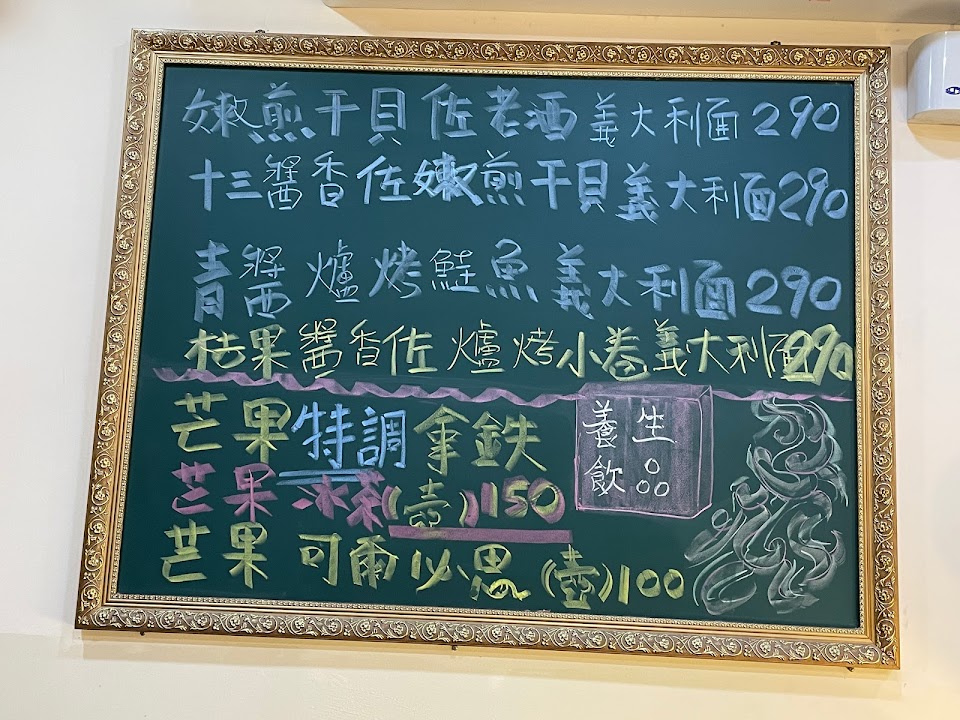 嫩煎干貝佐老酒義大利面290
十三醬香佐嫩煎干貝義大利面290
青醬爐烤鮭魚義大利面290
桔果醬香佐爐烤小卷義大利面290
芒果特調拿鉄
芒果冰茶(壺)150
芒果可爾必思(壺)100
養生
飲品